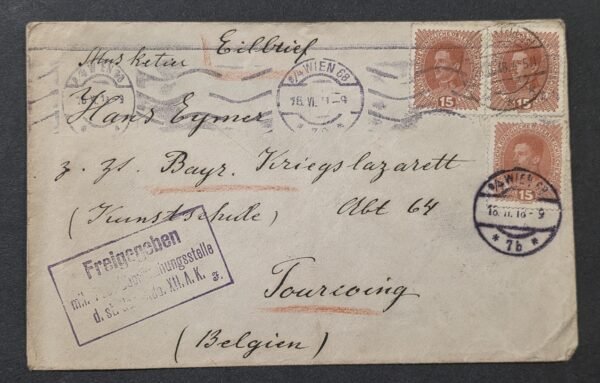 Eilbrief
Musketier
9/4 WIEN 68
16. VI. 18 - 9
* 7b *
Hans Eymer
z. Zt. Bayr. Kriegslazarett
(Kunstschule) Abt 64
Tourcoing
(Belgien)
Freigegeben
mil.
d. st. XII. A. K. 3.
15
15
15
9/4 WIEN 68
16. VI. 18 - 9
* 7b *